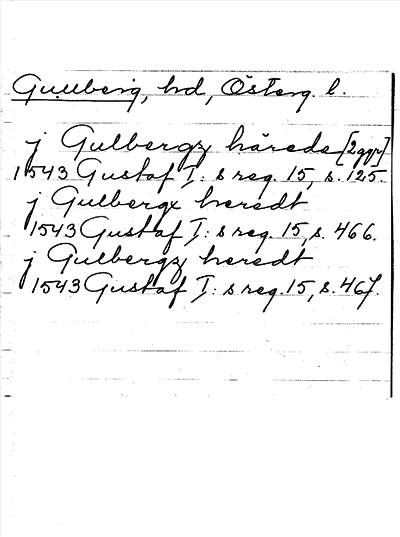 Gullberg, hd, Österg. l.
j Gulbergz härede [2 ggr]
1543 Gustaf I:s reg. 15, s. 125.
j Gulbergx heredt
1543 Gustaf I:s reg. 15, s. 466.
j Gulbergz heredt
1543 Gustaf I:s reg. 15, s. 467.